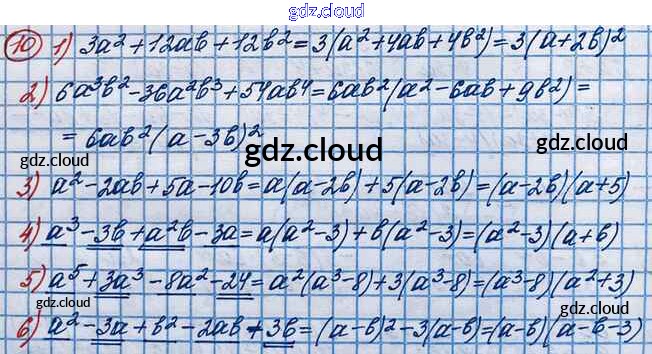 gdz.cloud
gdz.cloud
10 1) 3a² + 12ab + 12b² = 3(a² + 4ab + 4b²) = 3(a + 2b)²
2) 6a³b² - 36a²b³ + 54ab⁴ = 6ab²(a² - 6ab + 9b²) =
= 6ab²(a - 3b)²
gdz.cloud gdz.cloud gdz.cloud
3) a² - 2ab + 5a - 10b = a(a - 2b) + 5(a - 2b) = (a - 2b)(a + 5)
4) a³ - 3b + a²b - 3a = a(a² - 3) + b(a² - 3) = (a² - 3)(a + b)
5) a⁵ + 3a³ - 8a² - 24 = a²(a³ - 8) + 3(a³ - 8) = (a³ - 8)(a² + 3)
gdz.cloud gdz.cloud gdz.cloud
6) a² - 3a + b² - 2ab + 3b = (a - b)² - 3(a - b) = (a - b)(a - b - 3)